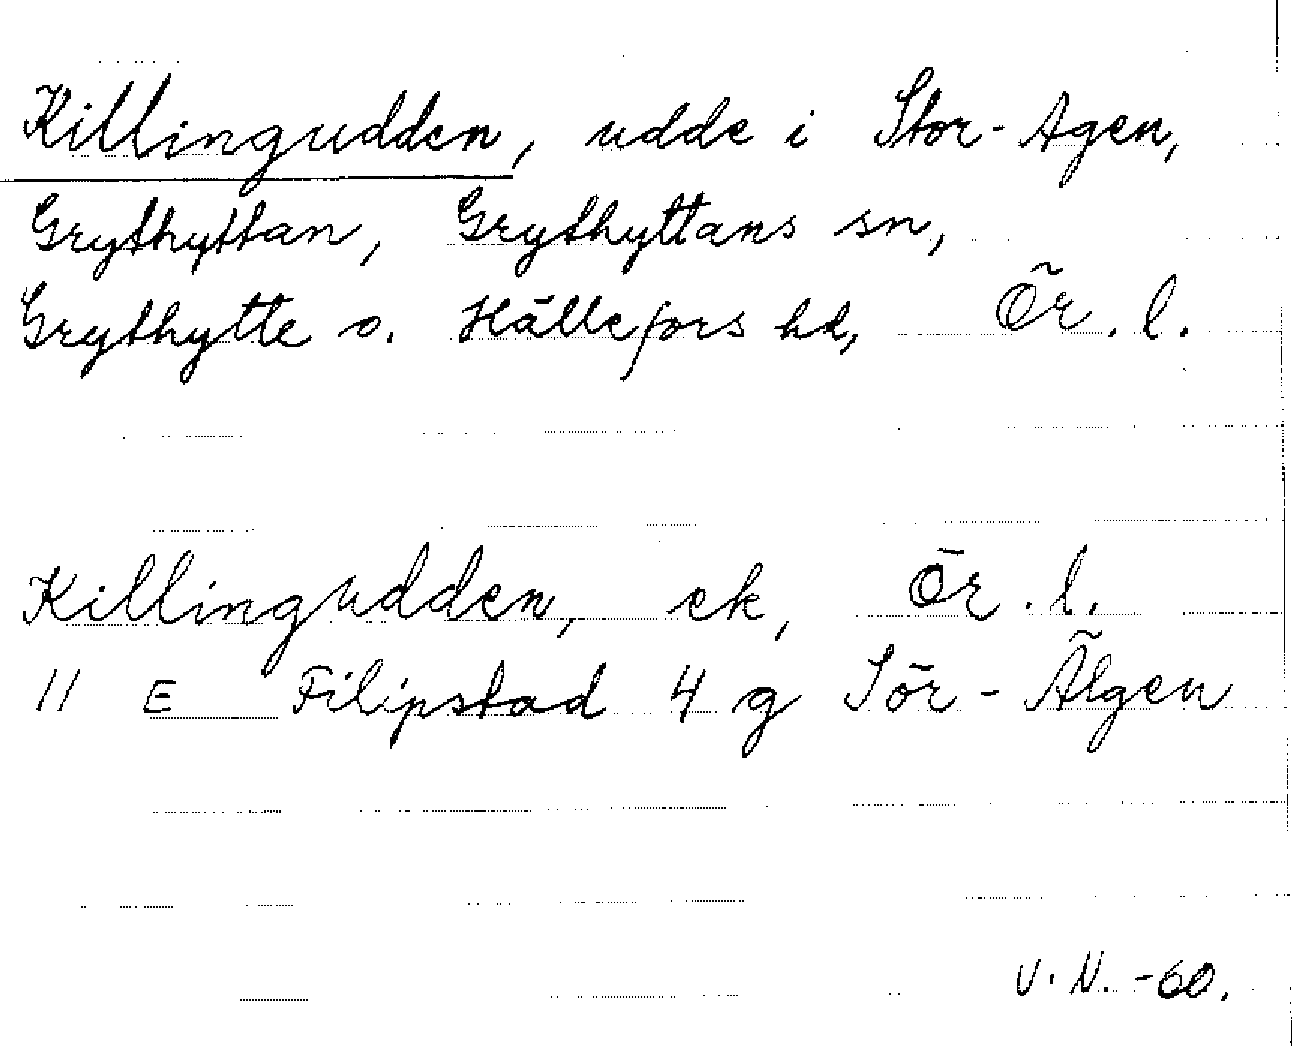 Killingudden, udde i Stor-Agen,
Grythyttan, Grythyttans sn,
Grythytte o. Hällefors hd, Ör. l.
Killingudden, ek, Ör. l.
11 E Filipstad 4 g Sör-Älgen
V. N. -60.